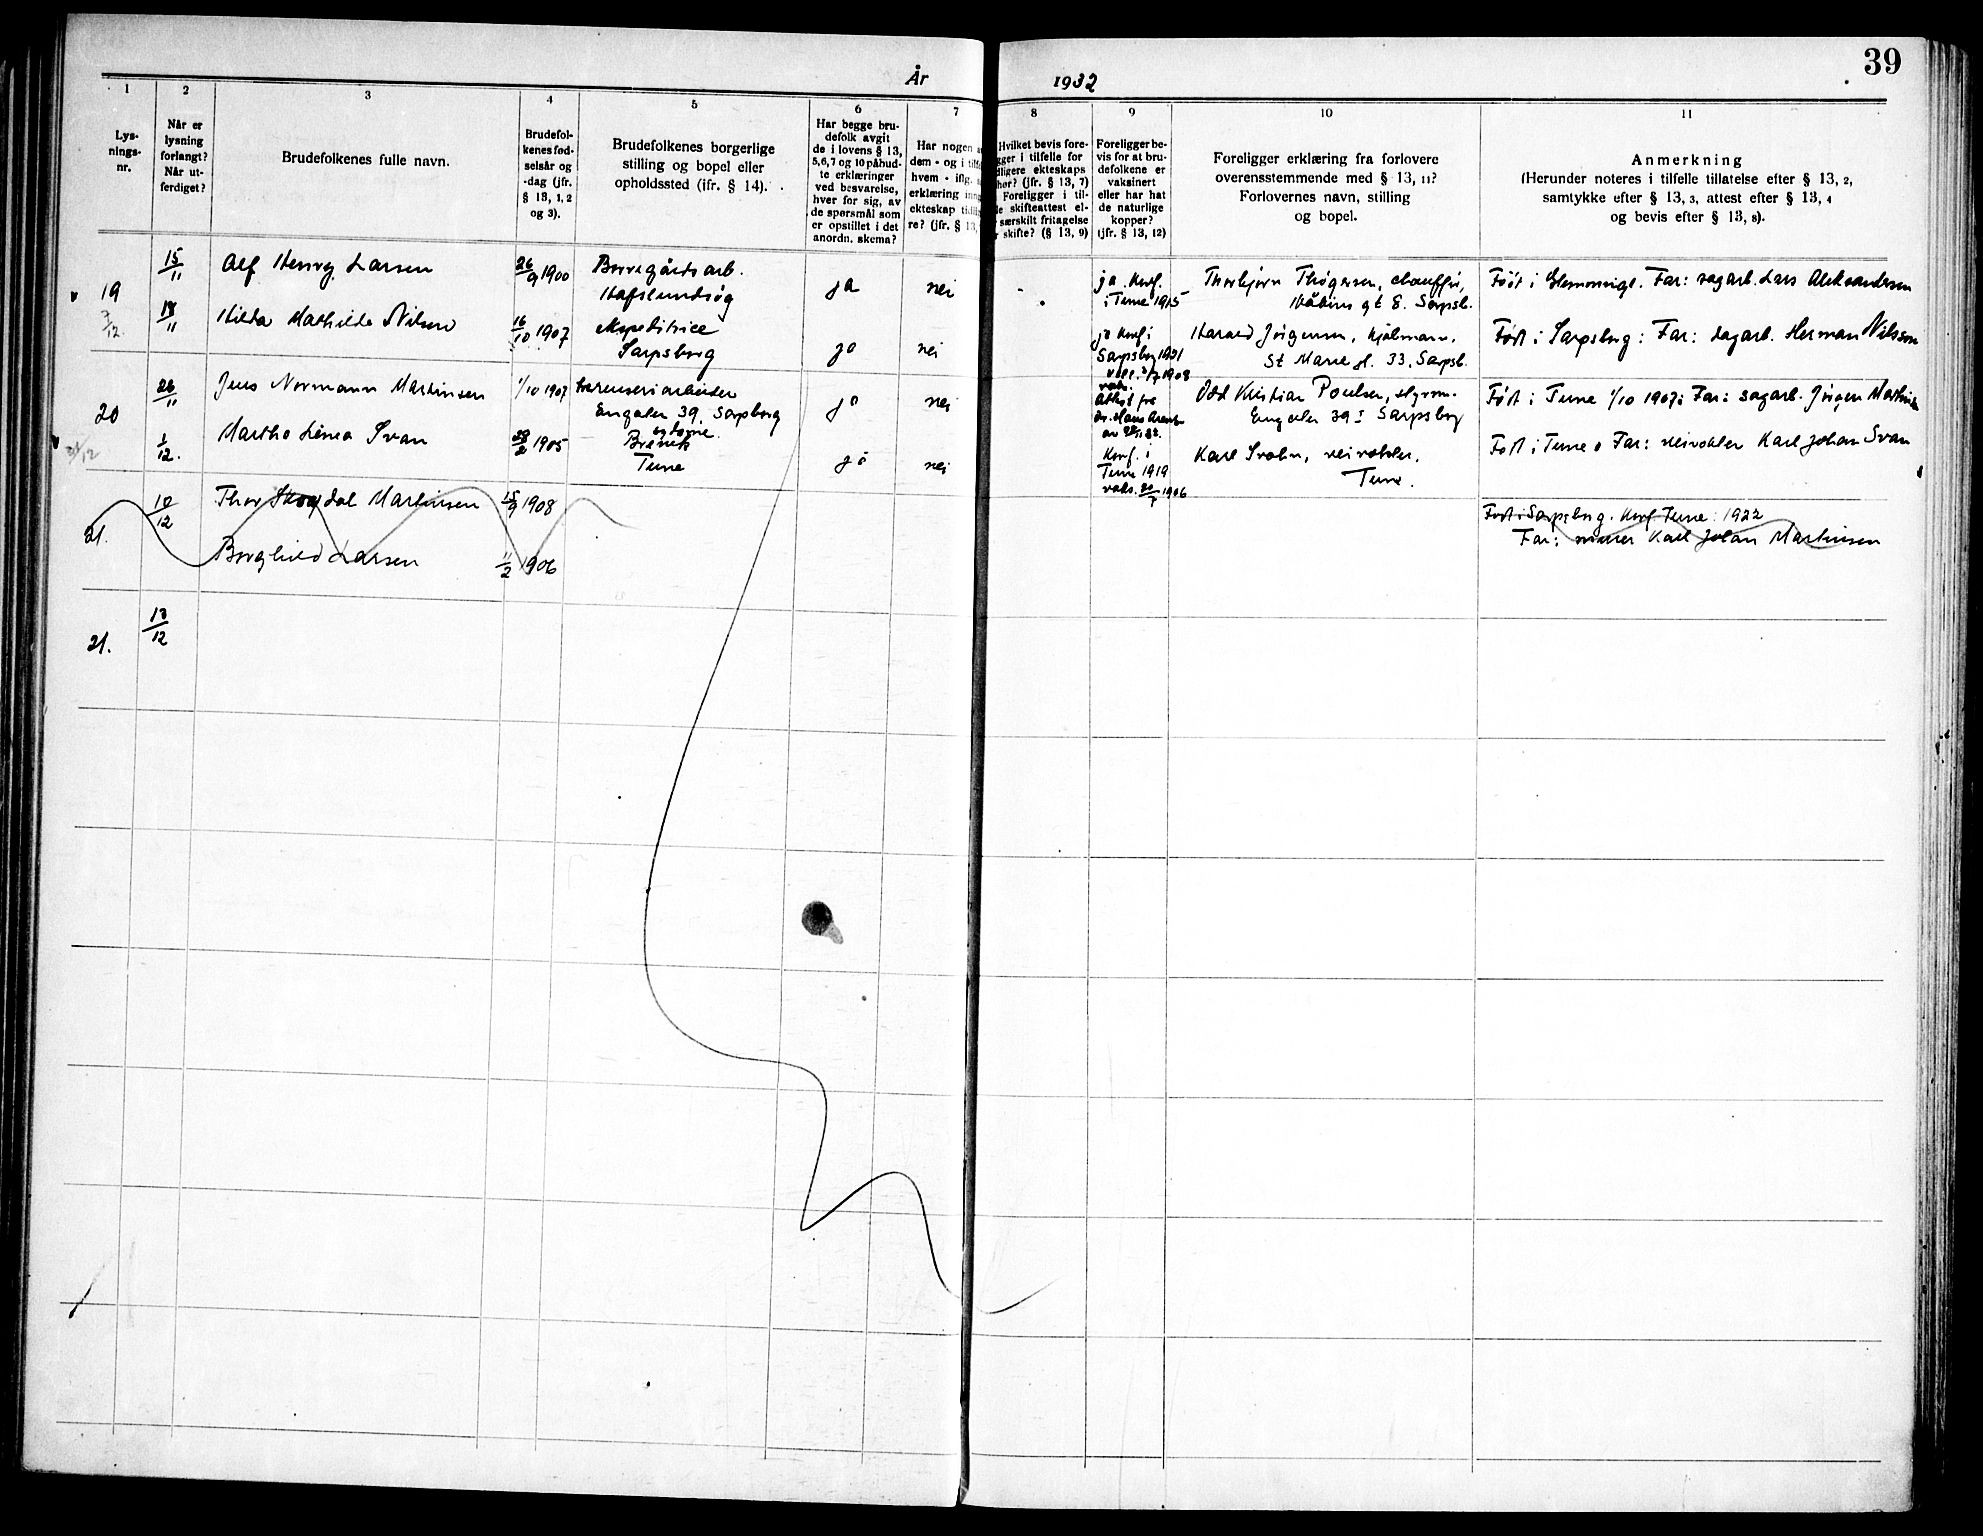 39
År 1932
1 2 3 4 5 6 7 8 9 10 11
Lys-
nings-
nr.
Når er
lysning
forlangt?
Når ut-
ferdiget?
Brudefolkenes fulle navn.
Brudefol-
kenes fød-
selsår og
-dag (jfr.
§ 13, 1, 2
og 3).
Brudefolkenes borgerlige
stilling og bopel eller
opholdssted (ifr. § 14).
Har begge bru-
defolk avgit
de i lovens § 13,
5, 6, 7 og 10 påbud-
te erklæringer
ved besvarelse,
hver for sig, av
de spørsmål som
er opstillet i det
anordn. skema?
Har nogen
dem - og i
hvem - iflg.
erklæring
ekteskap
re? (jfr. § 13,
Hvilket bevis fore-
gger i tilfelle for
dligere ekteskaps
hør? (jfr. § 13, 7)
Foreligger i til-
le skifteattest el-
særskilt fritagelse
skifte? (§ 13, 9)
Foreligger be-
vis for at bru-
defolkene er
vaksinert
eller har hat
de naturlige
kopper?
(jfr. § 13, 12)
Foreligger erklæring fra forlovere
overensstemmende med § 13, 11?
Forlovernes navn, stilling
og bopel.
Anmerkning
(Herunder noteres i tilfelle tillatelse efter § 13, 2,
samtykke efter § 13, 3, attest efter § 13, 4
og bevis efter § 13, 8).
19
7/12
15/11
18/11
Alf Henry Larsen
26/9 1900
Borregårds arb.
Hafslundsøg
ja
nei
ja. Konf.
i Tune 1915
Thorbjørn Thøgersen, chauffør,
Håkons gt 8. Sarpsb.
Født i Glemmingl. Far: sagarb. Lars Aleksandersen
Hilda Mathilde Nilsen
16/10 1907
ekspeditrice
Sarpsborg
ja
nei
ja konf i
Sarpsborg 1921
vacc. 3/7 1908
Harald Jørgensen,
St Marie gt. 33, Sarpsb.
Født i Sarpsborg: Far: dagarb. Herman Nilsson
20
26/11
1/12.
Jens Normann Martinsen
1/10 1907
Engalen 39, Sarpsborg
ja
nei
vaks.
Attest fra
dr. Hans
Odd Kristian Poulsen, styrm.
Engalen 39 I Sarpsborg
Født i Tune 1/10 1907: Far: sagarb. Jørgen Martins
Martha Linea Svan
28/2 1905
hjemme.
Tune
ja
nei
Konf. i
Tune 1919
vaks. 20/7 1906
Karl Svahn, veivokter,
Tune.
Født i Tune. Far: veivokter Karl Johan Svan
21.
10/12
Thor Skogdal Martinsen
15/9 1908
Født i Sarpsborg. Konf Tune: 1922
Far: murer Karl Johan Martinsen
Borghild Larsen
11/2 1906
21.
13/12